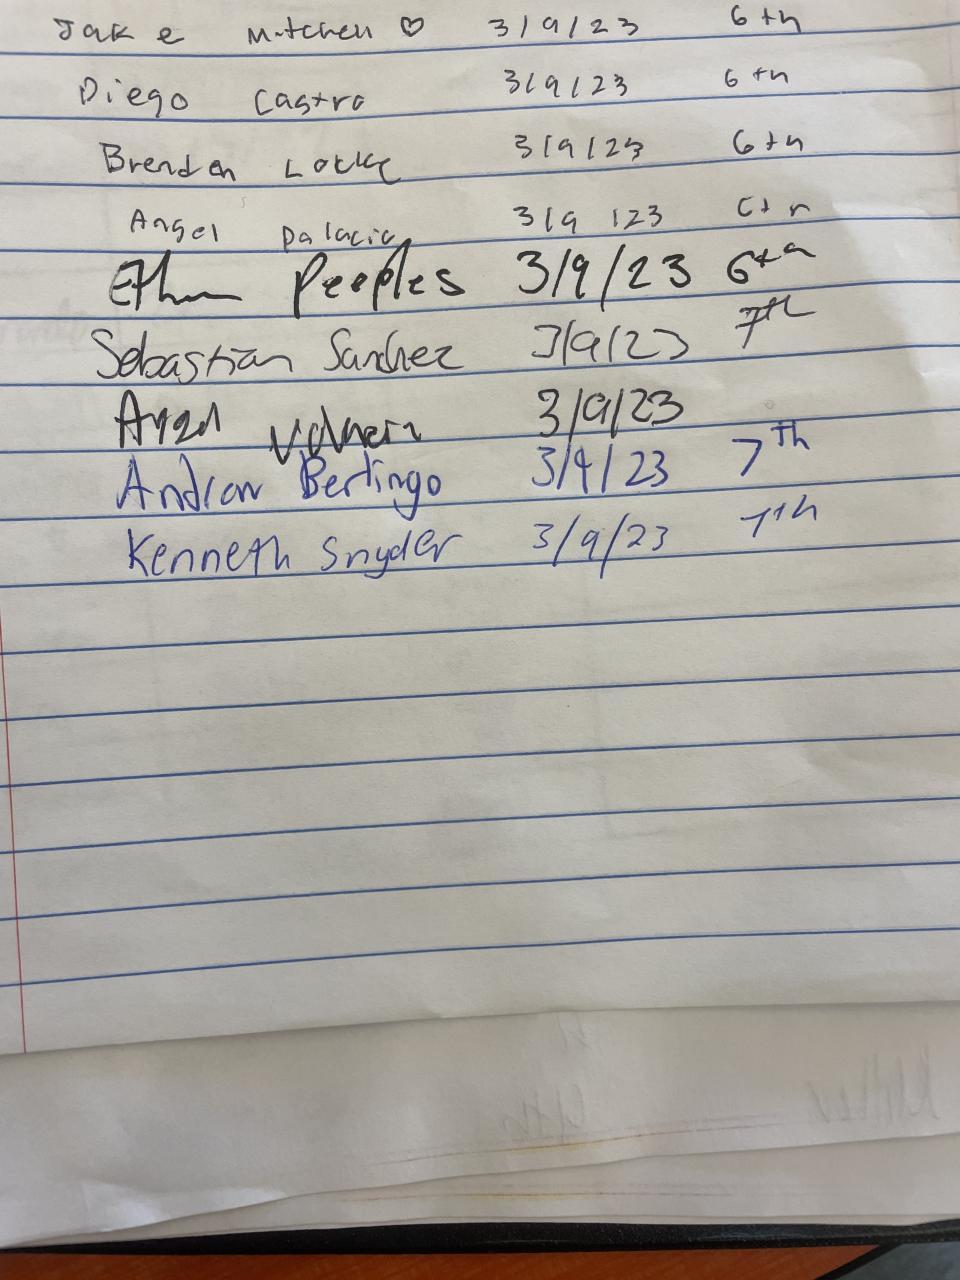 Jake Mitchell ♡ 3/9/23 6th
Diego Castro 3/9/23 6th
Brenden Locke 3/9/23 6th
Angel Palacio 3/9/23 6th
Ethan Peeples 3/9/23 6th
Sebastian Sanchez 3/9/23 7th
Angel 3/9/23
Andrew Berlingo 3/9/23 7th
Kenneth Snyder 3/9/23 7th